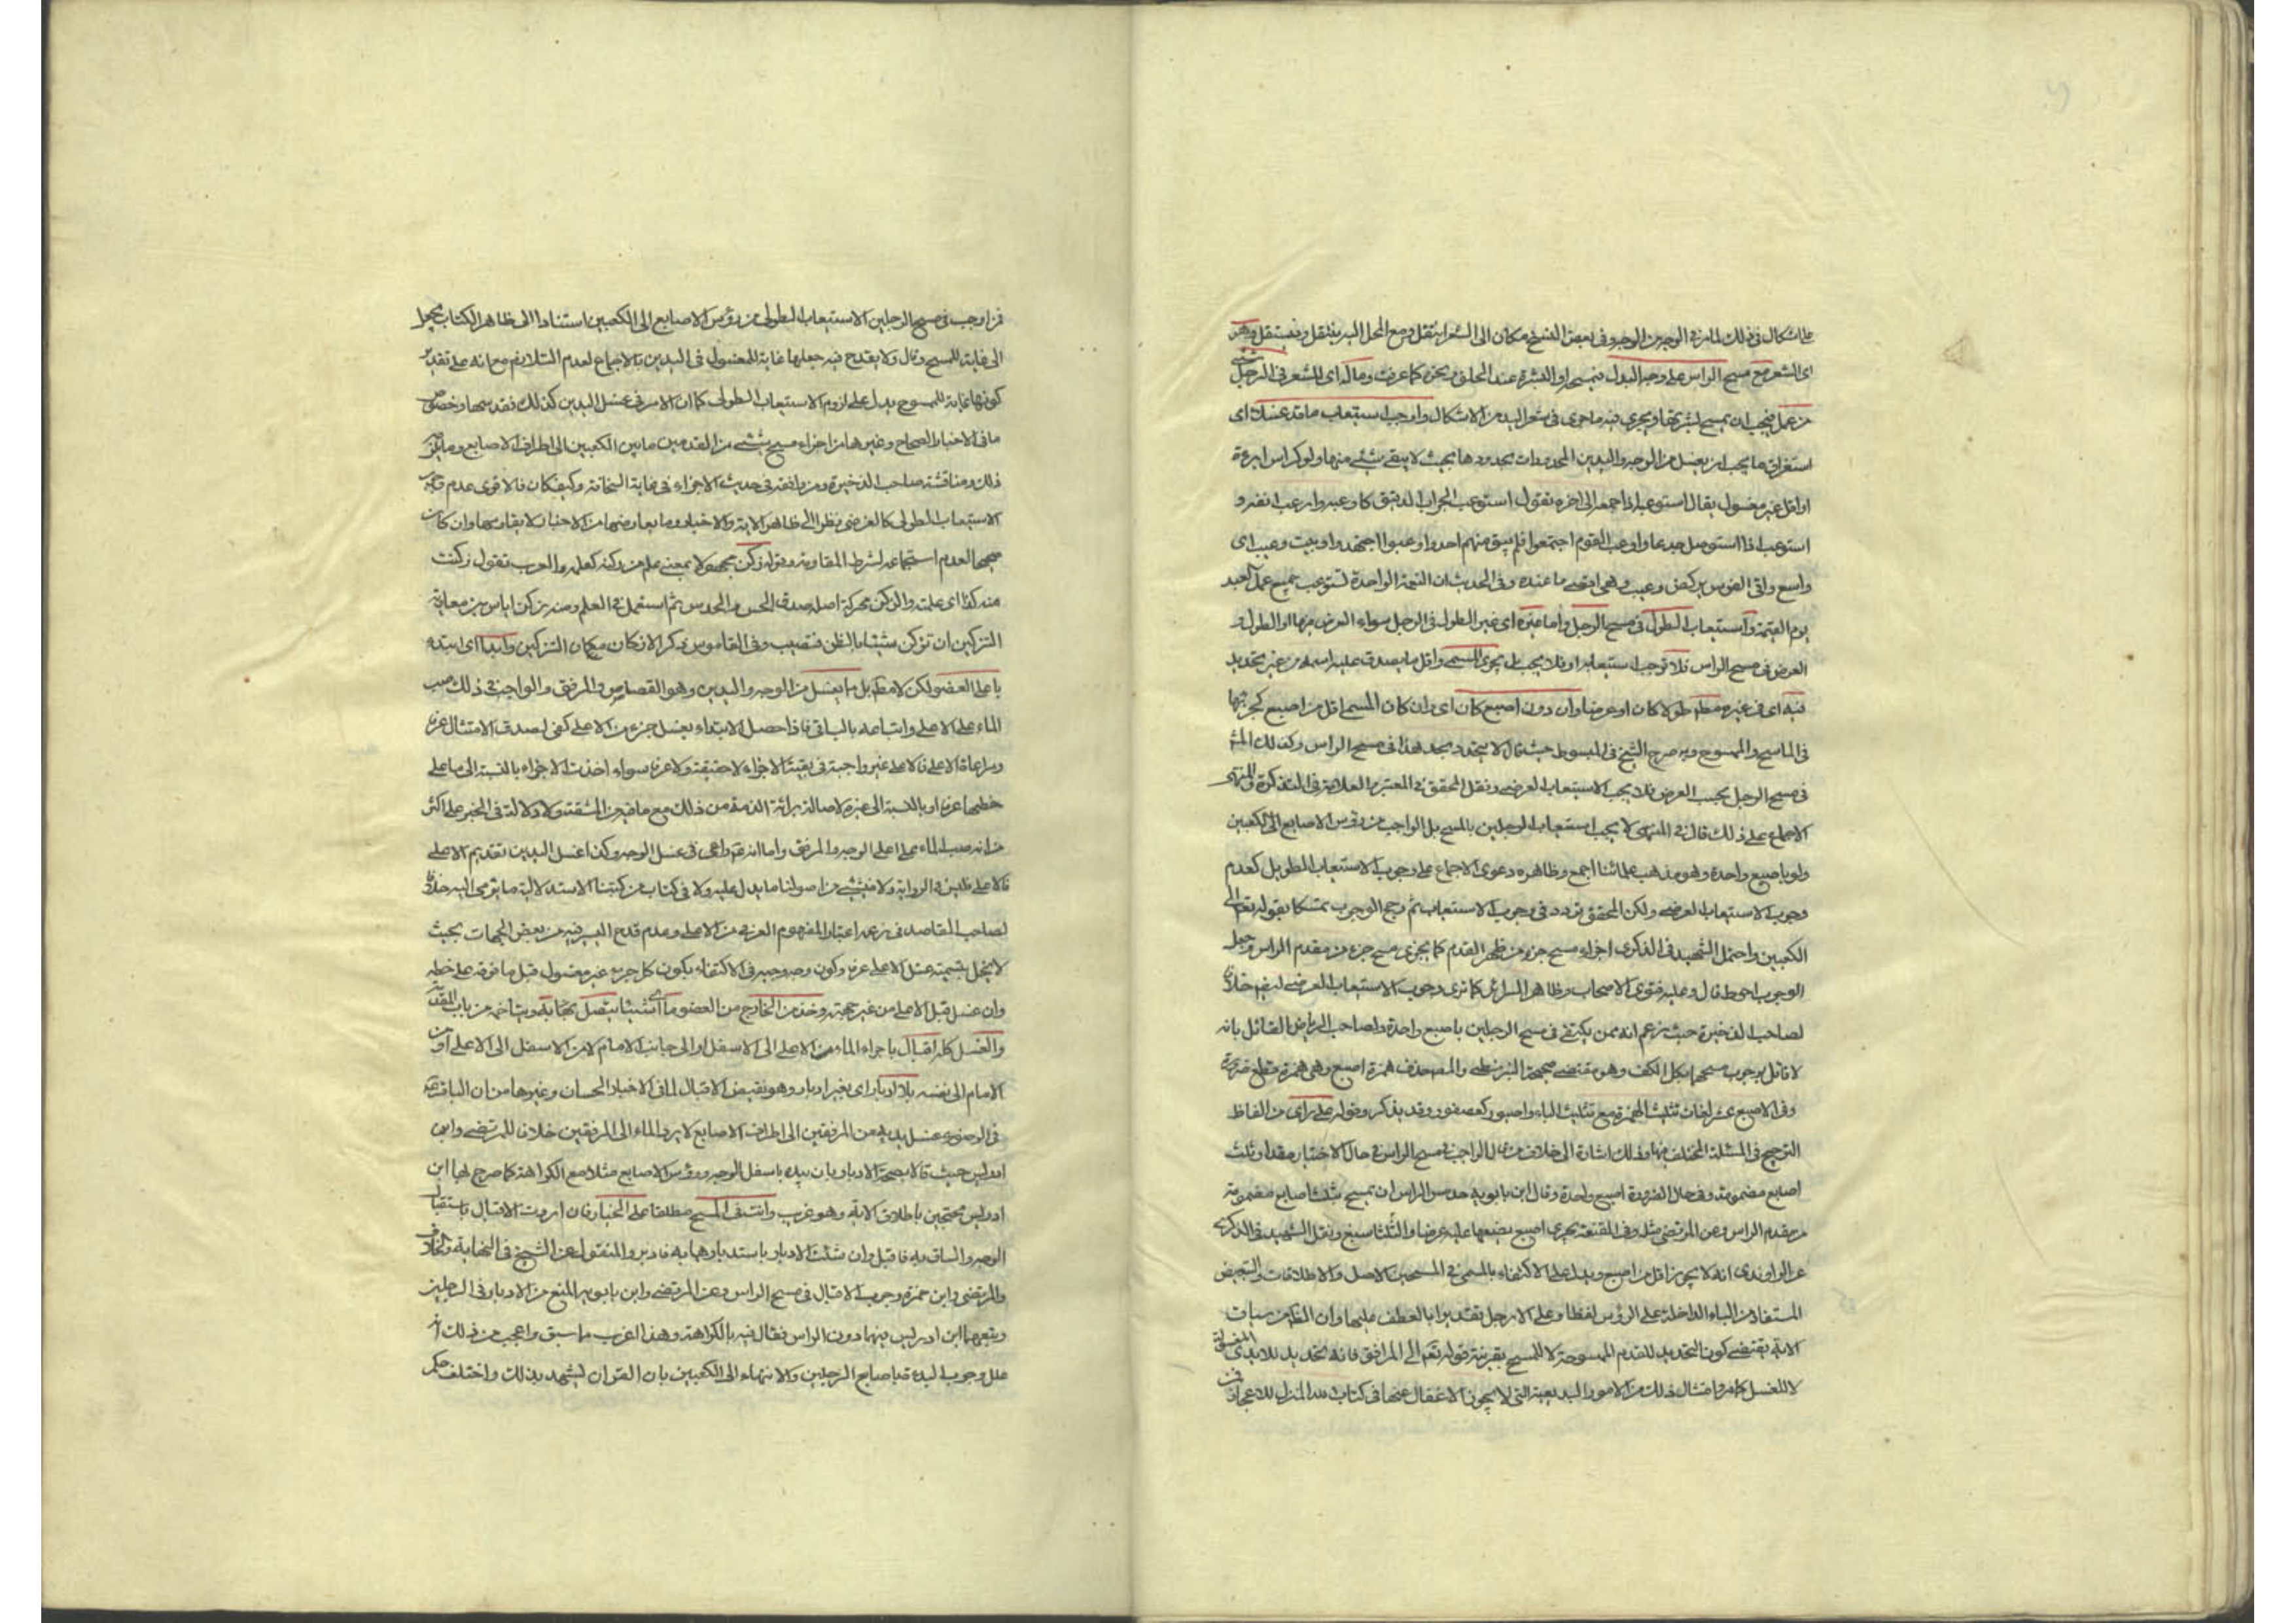 اى الشعر مع مسح الراس على وجه البدل فيمسحه او البشرة عند الحلق ونحوه كما عرفت وماله اى للشعر فى الرجل
من عمل فيجب ان يمسح لبشرتها ويجرى فيه ما جرى فى شعر اليد من الاشكال واوجب استيعاب ما قد غسلا اى
استغراق ما يجب ان يغسل من الوجه واليدين المحدودات بحدودها بحيث لا يبقى شئ منها ولو كراس ابرة
او اقل غير مغسول يقال استوعبه اذا جمعه الى اخره تقول استوعب الجراب الدقيق كاوعبه واوعب انفه و
استوعب اذا استوصل جدعا واوعب القوم اجتمعوا فلم يبق منهم احد واوعبوا اجتهدوا وبيت وعيب اى
واسع واتى الفرس بركض وعيب وهى اقصى ما عنده وفى الحديث ان النعمة الواحدة تستوعب جميع عمل العبد
يوم القيمة واستيعاب الطول فى مسح الرجل واما غيره اى غير الطول فى الرجل سواء العرض منها او الطول و
العرض فى مسح الراس فلا توجب استيعابه او فلا يجب بل يجزى المسمى واقل ما يصدق عليه اسمه من غير تحديد
فيه اى فى غيره مطلقا طولا كان او عرضا وان دون اصبع كان اى وان كان المسمى اقل من اصبع
فى الماسح والممسوح وبه صرح الشيخ فى المبسوط حيث قال لا يتحدد بحد هذا فى مسح الراس وكذلك
فى مسح الرجل بحسب العرض فلا يجب الاستيعاب العرضى ونقل المحقق فى المعتبر والعلامة فى التذكرة والمنتهى
الاجماع على ذلك قال فى المنتهى لا يجب استيعاب الرجلين بالمسح بل الواجب من رؤس الاصابع الى الكعبين
ولو باصبع واحدة وهو مذهب علمائنا اجمع وظاهره دعوى الاجماع على وجوب الاستيعاب الطويل كعدم
وجوب الاستيعاب العرضى ولكن المحقق تردد فى وجوب الاستيعاب ثم رجح الوجوب تمسكا بقوله تعالى الى
الكعبين واحتمل الشهيد فى الذكرى اجزاء مسح جزء من ظهر القدم كما يجزى مسح جزء من مقدم الراس وجعل
الوجوب احوط قال وعليه فتوى الاصحاب وظاهر السرائر كما ترى وجوب الاستيعاب العرضى ايضا خلافا
لصاحب الذخيرة حيث زعم انه ممن يكتفى فى مسح الرجلين باصبع واحدة ولصاحب الرياض القائل بانه
لا قائل بوجوب مسحهما بكل الكف وهو مقتضى صحيحة البزنطى والمص حذف همزة اصبع وهى همزة قطع ضرورة
وفى الاصبع عشر لغات تثليث الهمزة مع تثليث الباء واصبوع كعصفور وقد يذكر وقوله على راى من الفاظ
الترجيح فى المسئلة المختلف فيها وذلك اشارة الى خلاف من قال الواجب فى مسح الراس فى حال الاختيار مقدار ثلث
اصابع مضمومة وفى حال الضرورة اصبع واحدة وقال ابن بابويه حد مس الراس ان يمسح بثلث اصابع مضمومة
من مقدم الراس وعن المرتضى مثله وفى المقنعة يجزى اصبع يضعها عليه عرضا والثلث اسبغ ونقل الشهيد فى الذكرى
عن الراوندى انه لا يجوز اقل من اصبع ويدل على الاكتفاء بالمسمى فى المسحين الاصل والاطلاقات والتبعيض
المستفاد من الباء الداخلة على الرؤس لفظا وعلى الارجل تقديرا بالعطف عليها وان الظاهر من سياق
الاية يقتضى كون التحديد للقدم الممسوحة لا للمسح بقرينة قوله تعالى الى المرافق فانه تحديد للايدى المغسولة
لا للغسل كما مر وامثال ذلك من الامور البديعية التى لا يجوز الاغفال عنها فى كتاب الله المنزل للاعجاز
فمن اوجب فى مسح الرجلين الاستيعاب الطولى من رؤس الاصابع الى الكعبين استنادا الى ظاهر الكتاب يجعل
الى غاية للمسح وقال ولا يقدح فيه جعلها غاية للمغسول فى اليدين بالاجماع لعدم التلازم مع انه على تقدير
كونها غاية للممسوح يدل على لزوم الاستيعاب الطولى كما ان الامر فى غسل اليدين كذلك فقد سها
ما فى الاخبار الصحاح وغيرها من اجزاء مسح شئ من القدمين ما بين الكعبين الى اطراف الاصابع
ذلك ومناقشة صاحب الذخيرة ومن يافقه فى حديث الاجزاء فى غاية السخافة وكيف كان فالاقوى عدم
الاستيعاب الطولى كالعرضى نظرا الى ظاهر الاية والاخبار وما يعارضها من الاخبار لا يقاومها وان كان
صحيحا لعدم استجماعه لشرط المقاومة وقوله زكن مجهولا بمعنى علم من زكنه كعلمه والعرب تقول زكنت
منه كذا اى علمته والزكن محركة اصله صدق الحس والحدس ثم استعمل فى العلم ومنه زكن اياس بن معاوية
التزكين ان تزكن شيئا بالظن فتصيب وفى القاموس ذكر الازكان مكان التزكين وابدا اى ابتده
باعلى العضو لكن لا مطلقا بل ما يغسل من الوجه واليدين وهو القصاص والمرفق والواجب فى ذلك صب
الماء على الاعلى واتباعه بالباقى فاذا حصل الابتداء بغسل جزء من الاعلى كفى لصدق الامتثال عرفا
ومراعاة الاعلى فالاعلى غير واجبة فى بقية الاجزاء لا حقيقة ولا عرفا سواء اخذت الاجزاء بالنسبة الى ما على
خطها عرفا او بالنسبة الى غيره لاصالة برائة الذمة من ذلك مع ما فيه من المشقة ولا دلالة فى الخبر على اكثر
من انه صب الماء على اعلى الوجه والمرفق واما انه راعى فى غسل الوجه وكذا غسل اليدين تقديم الاعلى
فالاعلى فليس فى الرواية ولا فى شئ من اصولنا ما يدل عليه ولا فى كتاب من كتبنا الاستدلالية ما يومى اليه خلافا
لصاحب المقاصد فى زعمه اعتبار المفهوم العرفى من الاعلى وعدم قدح اليسير فيه من بعض الجهات بحيث
لا يخل بتسميته غسل الاعلى عرفا وكون وجه وجيه فى الاكتفاء بكون كل جزء غير مغسول قبل ما فوقه على خطه
وان غسل قبل الاعلى من غير جهته وخذ من الخارج من العضو ما اى شيئا يتصل بحافته ويتاخمه من باب المقدمة
والغسل كله اقبال باجراء الماء من الاعلى الى الاسفل او الى جانب الامام لا من الاسفل الى الاعلى او من
الامام الى نفسه بلا ادبار اى بغير ادبار وهو نقيض الاقبال لما فى الاخبار الحسان وغيرها من ان الباقر
فى الوضوء غسل يديه من المرفقين الى اطراف الاصابع لا يرد الماء الى المرفقين خلاف للمرتضى وابن
ادريس حيث قالا بصحة الادبار بان يبده باسفل الوجه ورؤس الاصابع مثلا مع الكراهة كما صرح بها ابن
ادريس محتجين باطلاق الاية وهو غريب وانتصف المسح مطلقا على الخيار فان اردت الاقبال باستقبال
الوجه والساق به فاقبل وان شئت الادبار باستدبارهما به فادبر والمنقول عن الشيخ فى النهاية والخلاف
والمرتضى وابن حمزة وجوب الاقبال فى مسح الراس وعن المرتضى وابن بابويه المنع من الادبار فى الرجلين
وتبعهما ابن ادريس فيهما دون الراس فقال فيه بالكراهة وهذا اغرب ما سبق واعجب من ذلك انه
علل وجوب البدءة باصابع الرجلين والانتهاء الى الكعبين بان القران ليشهد بذلك واختلف حكم